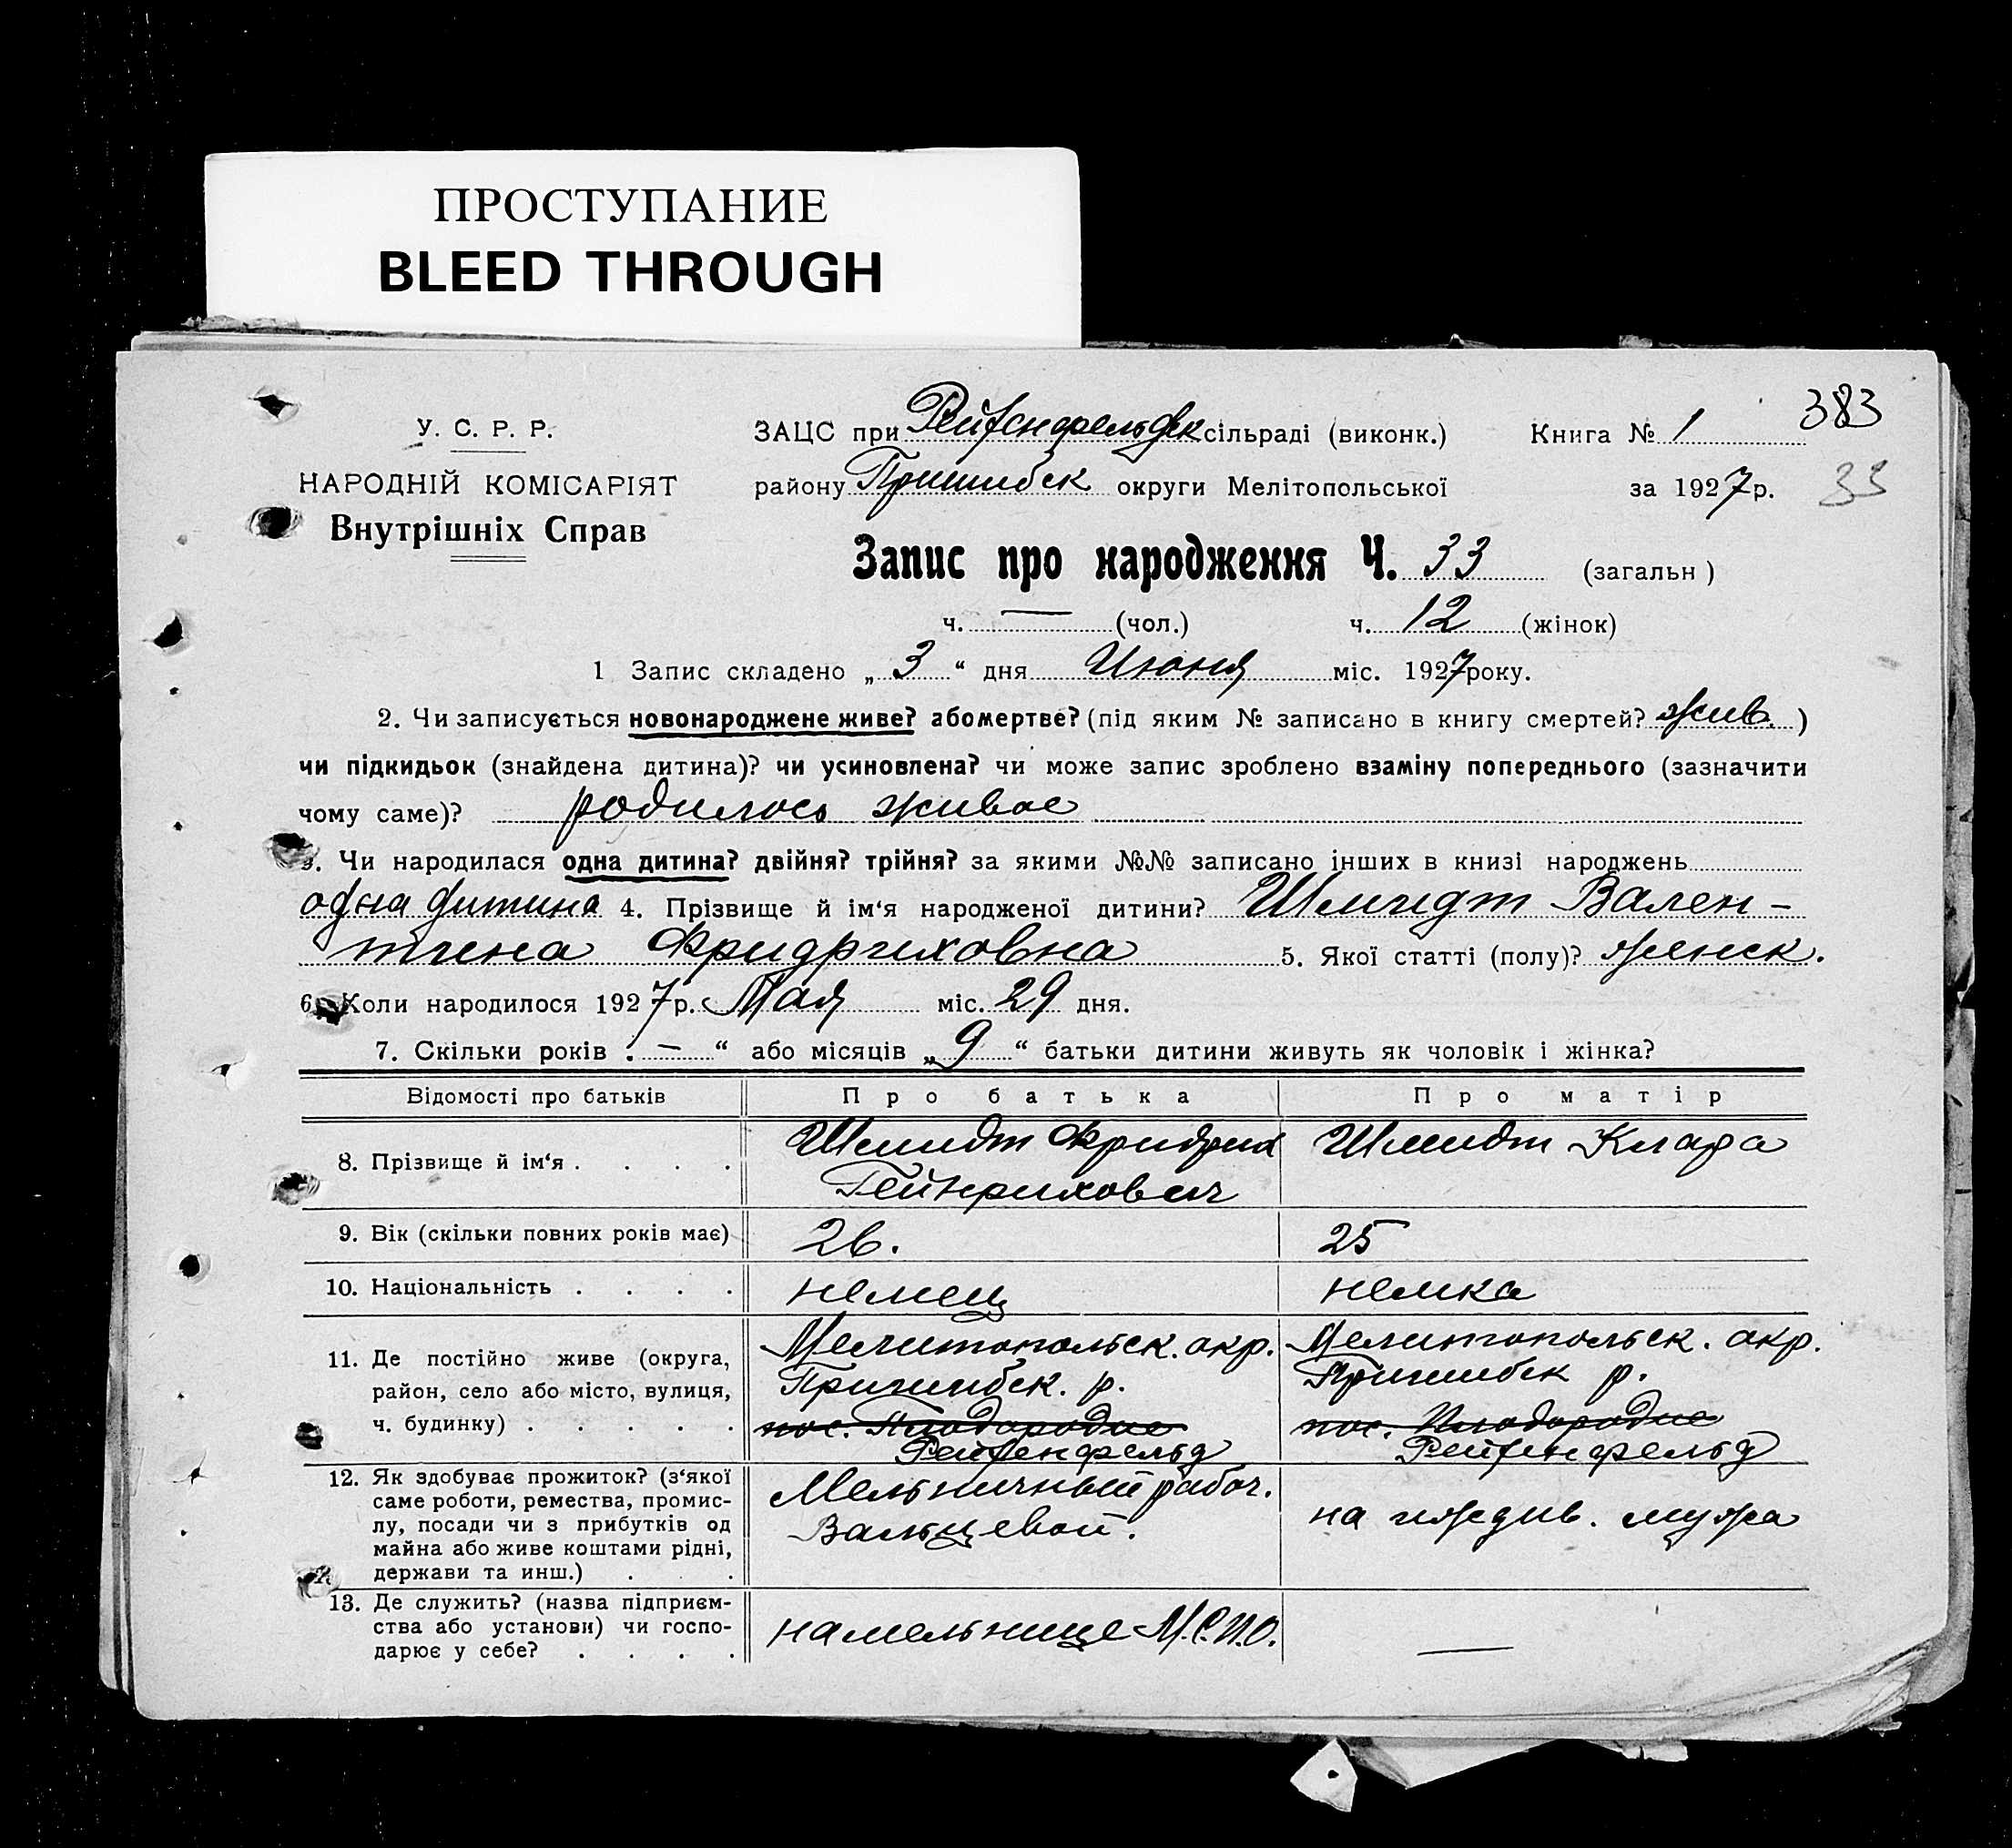 ПРОСТУПАНИЕ
BLEED THROUGH
383
У. С. Р. Р.
НАРОДНІЙ КОМІСАРІЯТ
Внутрішніх Справ
ЗАЦС при Рейхенфельдск сільраді (виконк.) Книга № 1
району Пришибск округи Мелітопольської за 1927 р. 33
Запис про народження Ч. 33 (загальн)
ч. — (чол.) ч. 12 (жінок)
1 Запис складено „3“ дня Июня міс. 1927 року.
2. Чи записується новонароджене живе? або мертве? (під яким № записано в книгу смертей? жив.)
чи підкидьок (знайдена дитина)? чи усиновлена? чи може запис зроблено взаміну попереднього (зазначити
чому саме)? родилось живое
3. Чи народилася одна дитина? двійня? трійня? за якими №№ записано інших в книзі народжень
одна дитина 4. Прізвище й ім‘я народженої дитини? Шмидт Вален-
тина Фридриховна 5. Якої статті (полу)? женск.
6. Коли народилося 1927 р. Мая міс. 29 дня.
7. Скільки років „—“ або місяців „9“ батьки дитини живуть як чоловік і жінка?
Відомості про батьків Про батька Про матір
8. Прізвище й ім‘я . . . . Шмидт Фридрих Шмидт Клара
Гейнрихович
9. Вік (скільки повних років має) 26. 25
10. Національність . . . . немец немка
11. Де постійно живе (округа, Мелитопольск. окр. Мелитопольск. окр.
район, село або місто, вулиця, Пришибск. р. Пришибск р.
ч. будинку) . . . . . пос. Плодородие пос. Плодородие
Рейхенфельд Рейхенфельд
12. Як здобуває прожиток? (з‘якої Мельничный рабоч. на иждив. мужа
саме роботи, ремества, промис- Вальцевой.
лу, посади чи з прибутків од
майна або живе коштами рідні,
держави та инш.) . . .
13. Де служить? (назва підприєм- на мельнице М.С.П.О. —
ства або установи) чи госпо-
дарює у себе? . . . .